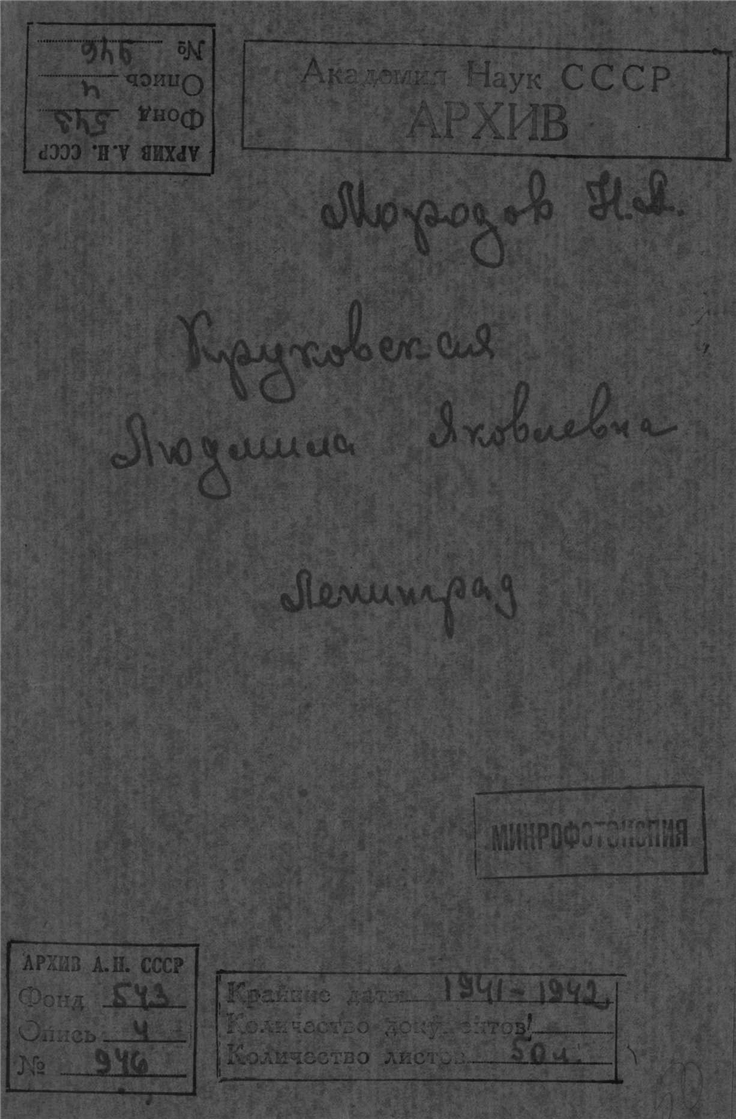 АРХИВ А.Н. СССР
Фонд 543
Опись 4
№ 946
Академия Наук СССР
АРХИВ
Морозов Н.А.
Круковская
Людмила Яковлевна
Ленинград
МИКРОФОТОКОПИЯ
АРХИВ А.Н. СССР
Фонд 543
Опись 4
№ 946
Крайние даты 1941-1942
Количество документов
Количество листов 50 л.